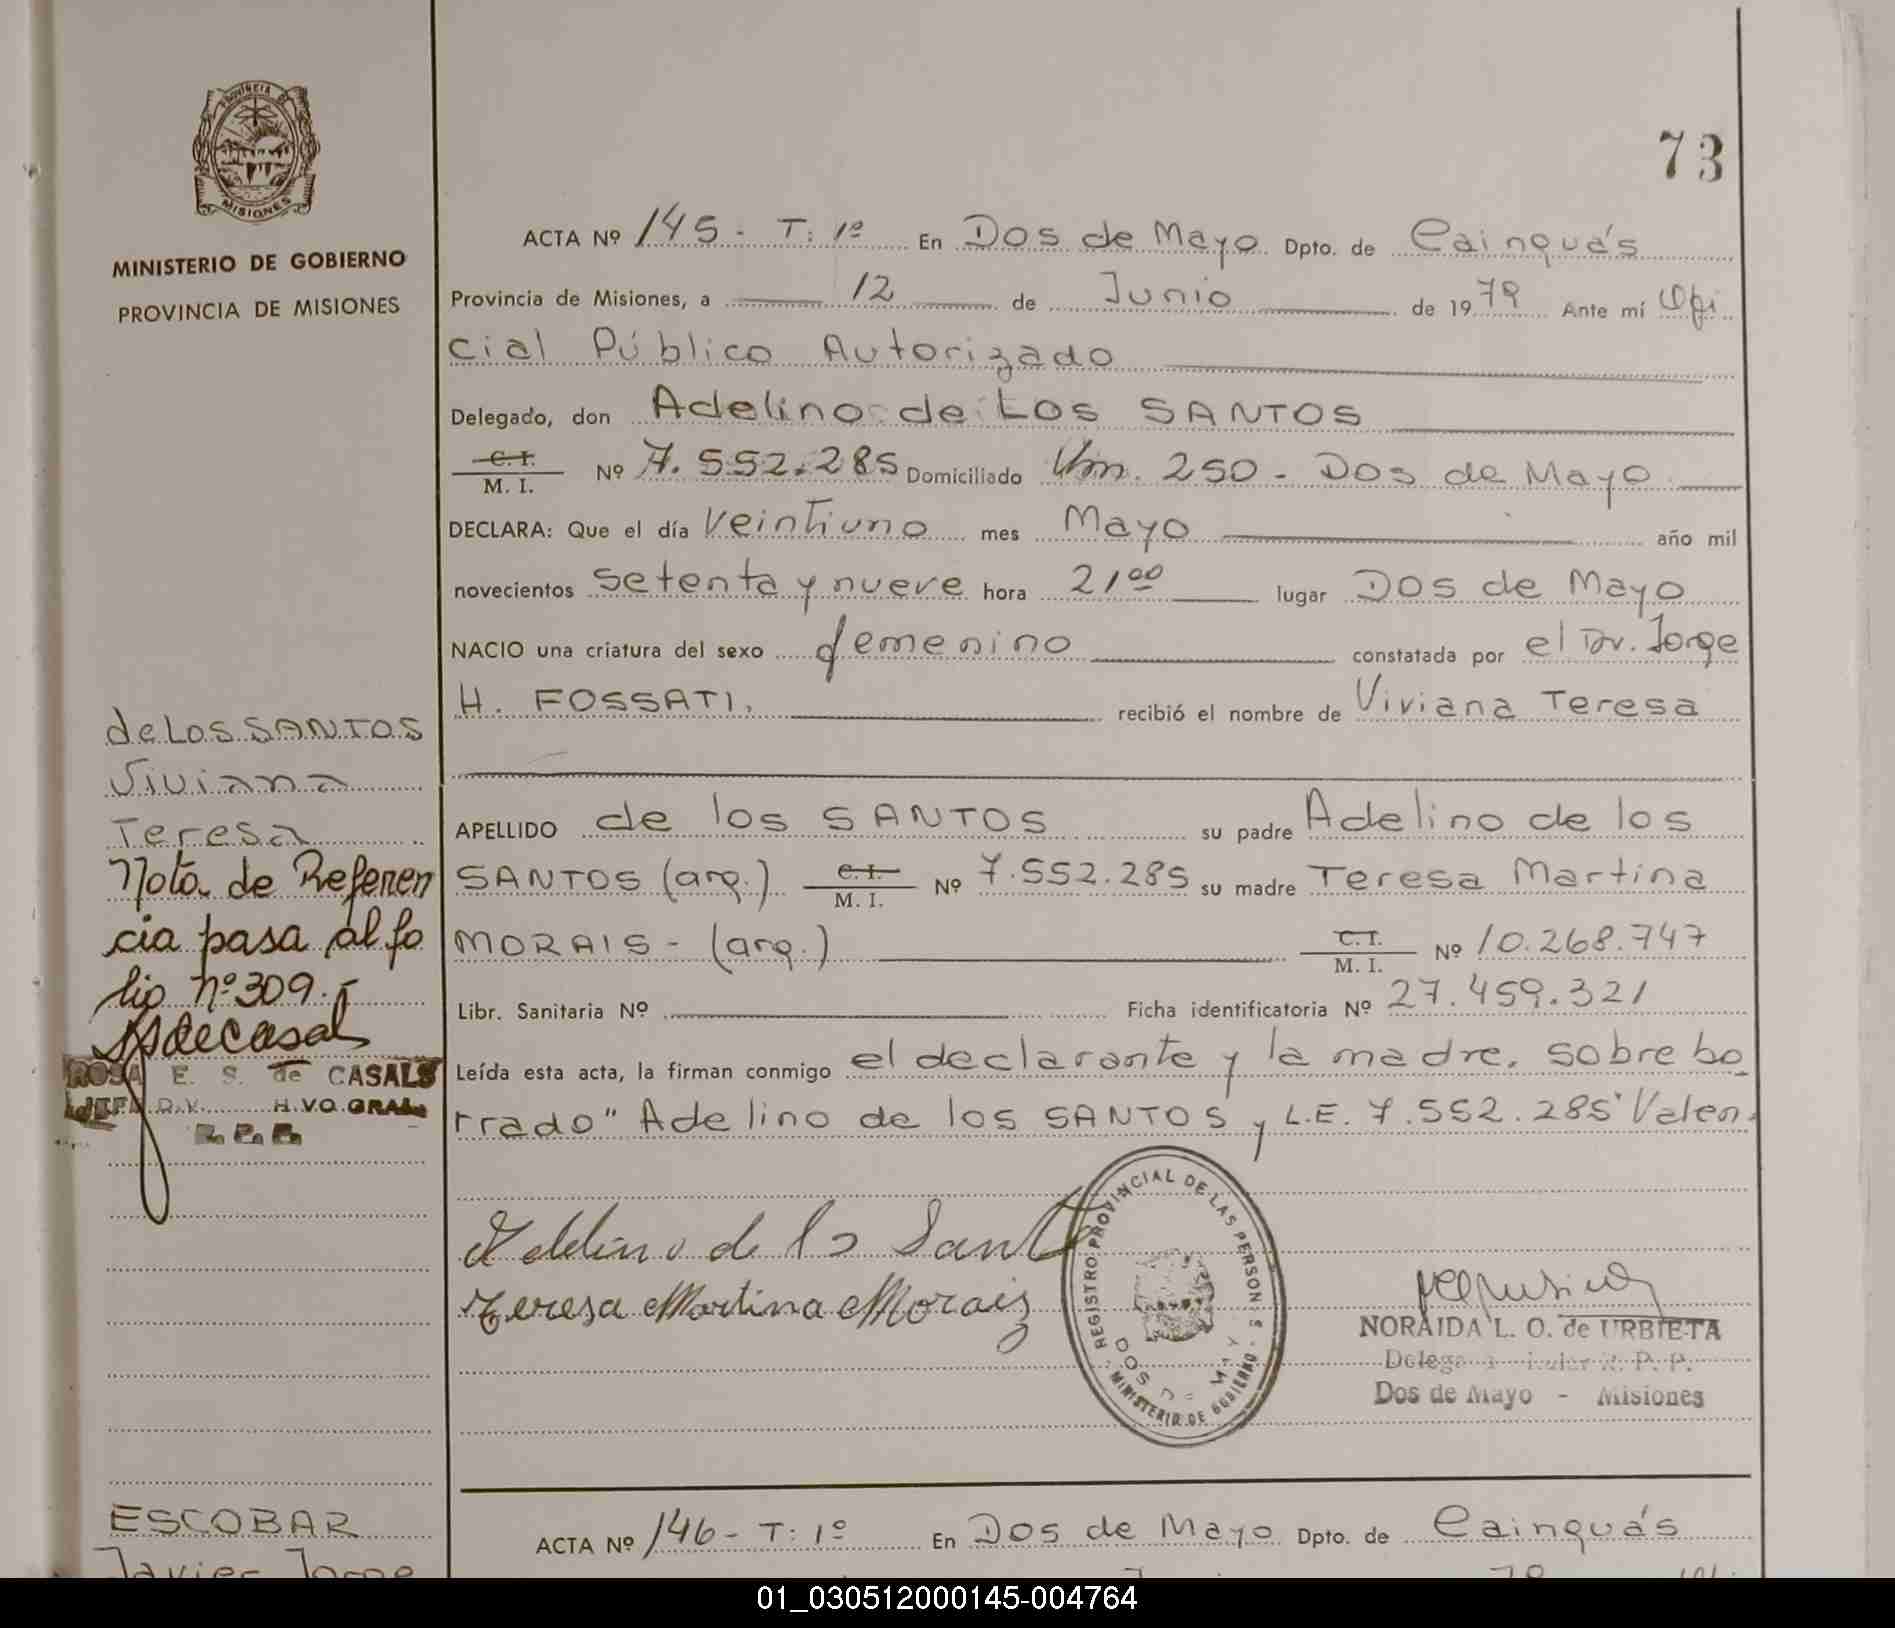 PROVINCIA DE
MISIONES
MINISTERIO DE GOBIERNO
PROVINCIA DE MISIONES
73
ACTA Nº 145 - T: 1º En Dos de Mayo Dpto. de Cainguás
Provincia de Misiones, a 12 de Junio de 1979 Ante mí Ofi
cial Público Autorizado
Delegado, don Adelino de Los SANTOS
C. I.
M. I. Nº 7.552.285 Domiciliado Km. 250 - Dos de Mayo
DECLARA: Que el día Veintiuno mes Mayo año mil
novecientos setenta y nueve hora 21 00 lugar Dos de Mayo
NACIO una criatura del sexo femenino constatada por el Dr. Jorge
H. FOSSATI, recibió el nombre de Viviana Teresa
de Los SANTOS
Viviana
Teresa
Nota de Referen
cia pasa al fo
lio nº 309.-
ROSA E. S. de CASALS
APELLIDO de los SANTOS su padre Adelino de los
SANTOS (arg.) C. I. M. I. Nº 7.552.285 su madre Teresa Martina
MORAIS - (arg.) C. I. M. I. Nº 10.268.747
Libr. Sanitaria Nº Ficha identificatoria Nº 27.459.321
Leída esta acta, la firman conmigo el declarante y la madre, sobre bo_
rrado "Adelino de los SANTOS y L.E. 7.552.285" Valen.
Adelino de los Santo
Teresa Martina Morais
REGISTRO PROVINCIAL DE LAS PERSONAS
DOS DE MAYO
MINISTERIO DE GOBIERNO
NORAIDA L. O. de URBIETA
R. P. P.
Dos de Mayo - Misiones
ESCOBAR
Javier Jorge
ACTA Nº 146 - T: 1º En Dos de Mayo Dpto. de Cainguás
01_030512000145-004764